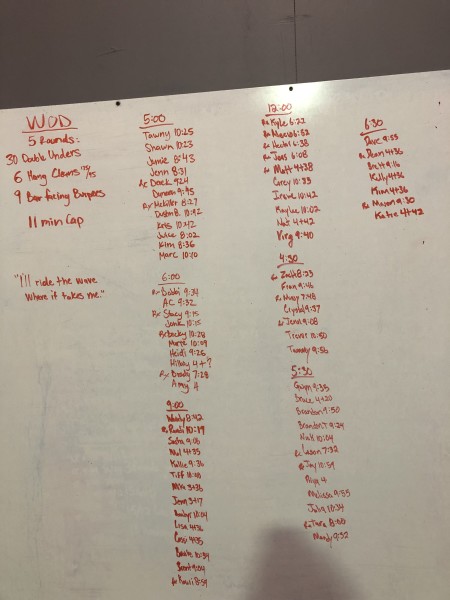 WOD
5 Rounds:
30 Double Unders
6 Hang Cleans 135/95
9 Bar facing Burpees
11 min Cap
"I'll ride the wave
Where it takes me."
5:00
Tawny 10:25
Shawn 10:23
Jamie 8:43
Jenn 8:31
Rx Dack 9:24
9:45
Rx McWiler 8:27
Dustin B. 10:42
Kris 10:42
Julie 8:02
Kim 8:36
Marc 10:10
6:00
Rx Debbi 9:34
AC 9:32
Rx Stacy 9:15
10:15
Rx Becky 10:28
10:09
Heidi 9:26
4+?
Rx Brody 7:28
Amy 4
9:00
Wendy 8:42
Rx 10:19
9:08
Mel 4+35
Kallie 9:36
Tiff
Mike 3+36
Jenn 3+17
10:04
Lisa 4+36
4+35
10:34
Brent 9:04
Rx 8:59
12:00
Rx Kyle 6:22
Rx Marcio 6:52
Rx Hector 6:38
Rx Joes 6:08
Rx Matt 4+38
Corey 10:33
Irene 10:42
Kaylee 10:02
Nat 4+42
Virg 9:40
4:30
Rx Zach 8:23
Fran 9:46
Rx 7:48
Crystal 9:37
Rx Jenn 9:08
Trevor 10:50
Tammy 9:56
5:30
Gwyn 9:35
Bruce 4+20
Brandon 9:50
Brandon T 9:24
Niall 10:04
Rx Jason 7:32
Rx Jay 10:59
Riya 4
Melissa 9:55
Julia 10:34
Rx Tara 8:30
Mandy 9:32
6:30
Dave 9:53
Rx Dean 4+36
Brett 9:16
Kelly 4+36
Kim 4+36
Rx Mason 9:30
Katie 4+42